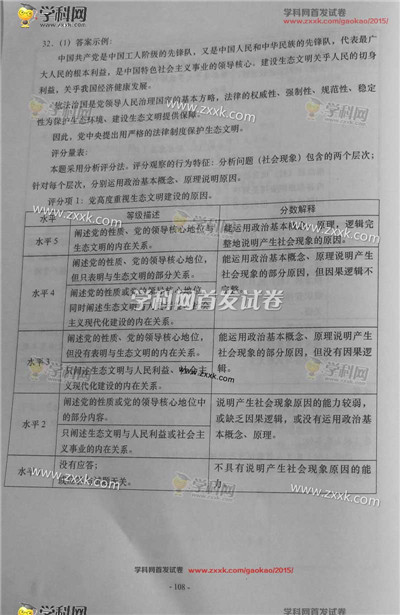 学科网 ZXXK.COM
学科网首发试卷
www.zxxk.com/gaokao/2015/
32.(1) 答案示例:
中国共产党是中国工人阶级的先锋队,又是中国人民和中华民族的先锋队,代表最广
大人民的根本利益,是中国特色社会主义事业的领导核心。建设生态文明关乎人民的切身
利益,关乎我国经济健康发展。
依法治国是党领导人民治理国家的基本方略,法律的权威性、强制性、规范性、稳定
性为保护生态环境、建设生态文明提供保障。
因此,党中央提出用严格的法律制度保护生态文明。
评分量表:
本题采用分析评分法。评分观察的行为特征:分析问题(社会现象)包含的两个层次;
针对每个层次,分别运用政治基本概念、原理说明原因。
评分项1:党高度重视生态文明建设的原因。
水平 等级描述 分数解释
水平5 阐述党的性质、党的领导核心地位与 能运用政治基本概念、原理,逻辑完
生态文明的内在关系。 整地说明产生社会现象的原因。
水平4 阐述党的性质、党的领导核心地位, 能运用政治基本概念、原理说明产生
但只表明与生态文明的部分关系。 社会现象的部分原因,但因果逻辑不
阐述党的性质或党的领导核心地位,
同时阐述生态文明与人民利益、
主义现代化建设的内在关系。
水平3 阐述党的性质、党的领导核心地位, 能运用政治基本概念、原理说明产生
但没有表明与生态文明的内在关系。 社会现象的部分原因,但没有因果逻
只阐述生态文明与人民利益、社会主 辑。
义现代化建设的内在关系。
水平2 阐述党的性质或党的领导核心地位中 说明产生社会现象原因的能力较弱,
的部分内容。 或缺乏因果逻辑,或没有运用政治基
只阐述生态文明与人民利益或社会主 本概念、原理。
义事业的内在关系。
水平 没有应答; 不具有说明产生社会现象原因的能
无关。 力
www.zxxk.com
学科网首发试卷
www.zxxk.com
www.zxxk.com
www.zxxk.com
学科网首发试卷 www.zxxk.com/gaokao/2015/
- 108 -
学科网 ZXXK.COM
学科网 ZXXK.COM